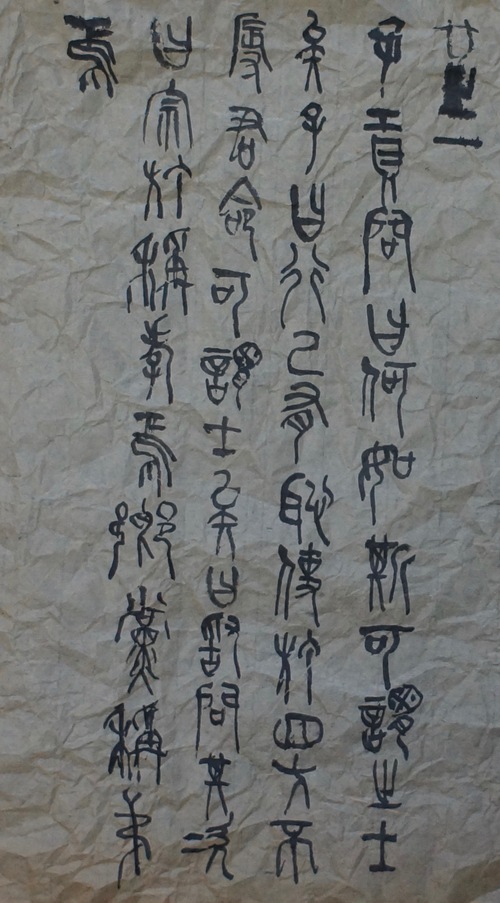 廿一
子貢問曰何如斯可謂之士
矣子曰行己有恥使於四方不
辱君命可謂士矣曰敢問其次
曰宗族稱孝焉鄉黨稱弟
焉